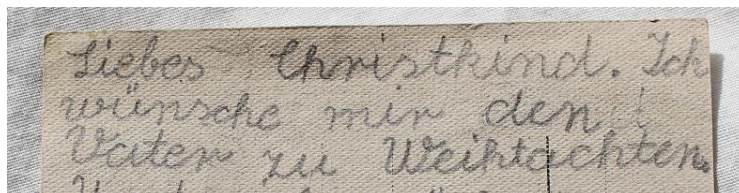 Liebes Christkind. Ich
wünsche mir den
Vater zu Weihtachten.